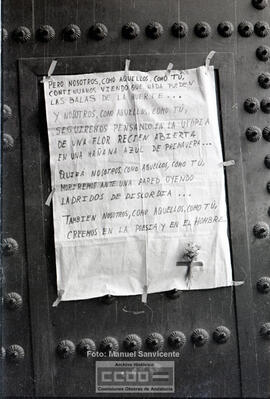 PERO NOSOTROS, COMO AQUELLOS, COMO TÚ,
CONTINUAMOS VIENDO QUE NADA PUEDEN
LAS BALAS DE LA MUERTE ...
Y NOSOTROS, COMO AQUELLOS, COMO TÚ,
SEGUIREMOS PENSANDO EN LA UTOPIA
DE UNA FLOR RECIEN ABIERTA
EN UNA MAÑANA AZUL DE PRIMAVERA ...
QUIZÁ NOSOTROS, COMO AQUELLOS, COMO TÚ,
MORIREMOS ANTE UNA PARED OYENDO
LADRIDOS DE DISCORDIA ...
TAMBIEN NOSOTROS, COMO AQUELLOS, COMO TÚ,
CREEMOS EN LA POESIA Y EN EL HOMBRE
Foto: Manuel Sanvicente
Archivo Histórico
CCOO
Comisiones Obreras de Andalucía